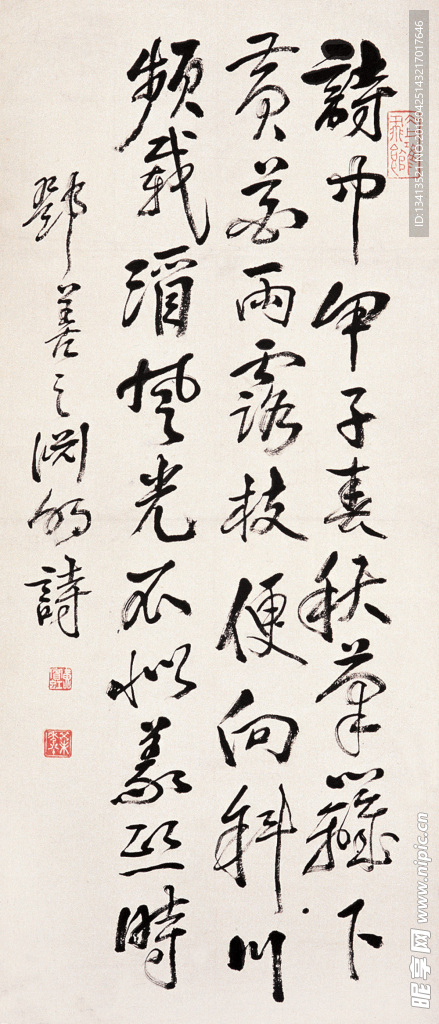 詩中甲子春秋筆籬下
黃花雨露枝便向斜川
頻載酒風光不似義熙時
鄧善之淵明詩
ID:13413521 NO:20150425143217017646
昵享网 www.nipic.cn